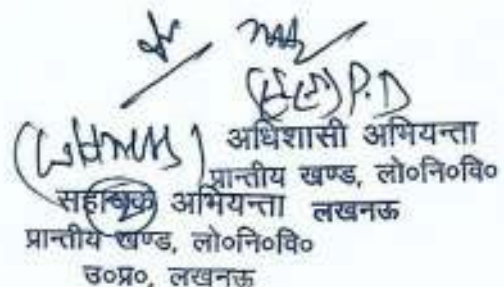 P.D
अधिशासी अभियन्ता
प्रान्तीय खण्ड, लो०नि०वि०
लखनऊ
सहायक अभियन्ता
प्रान्तीय खण्ड, लो०नि०वि०
उ०प्र०, लखनऊ